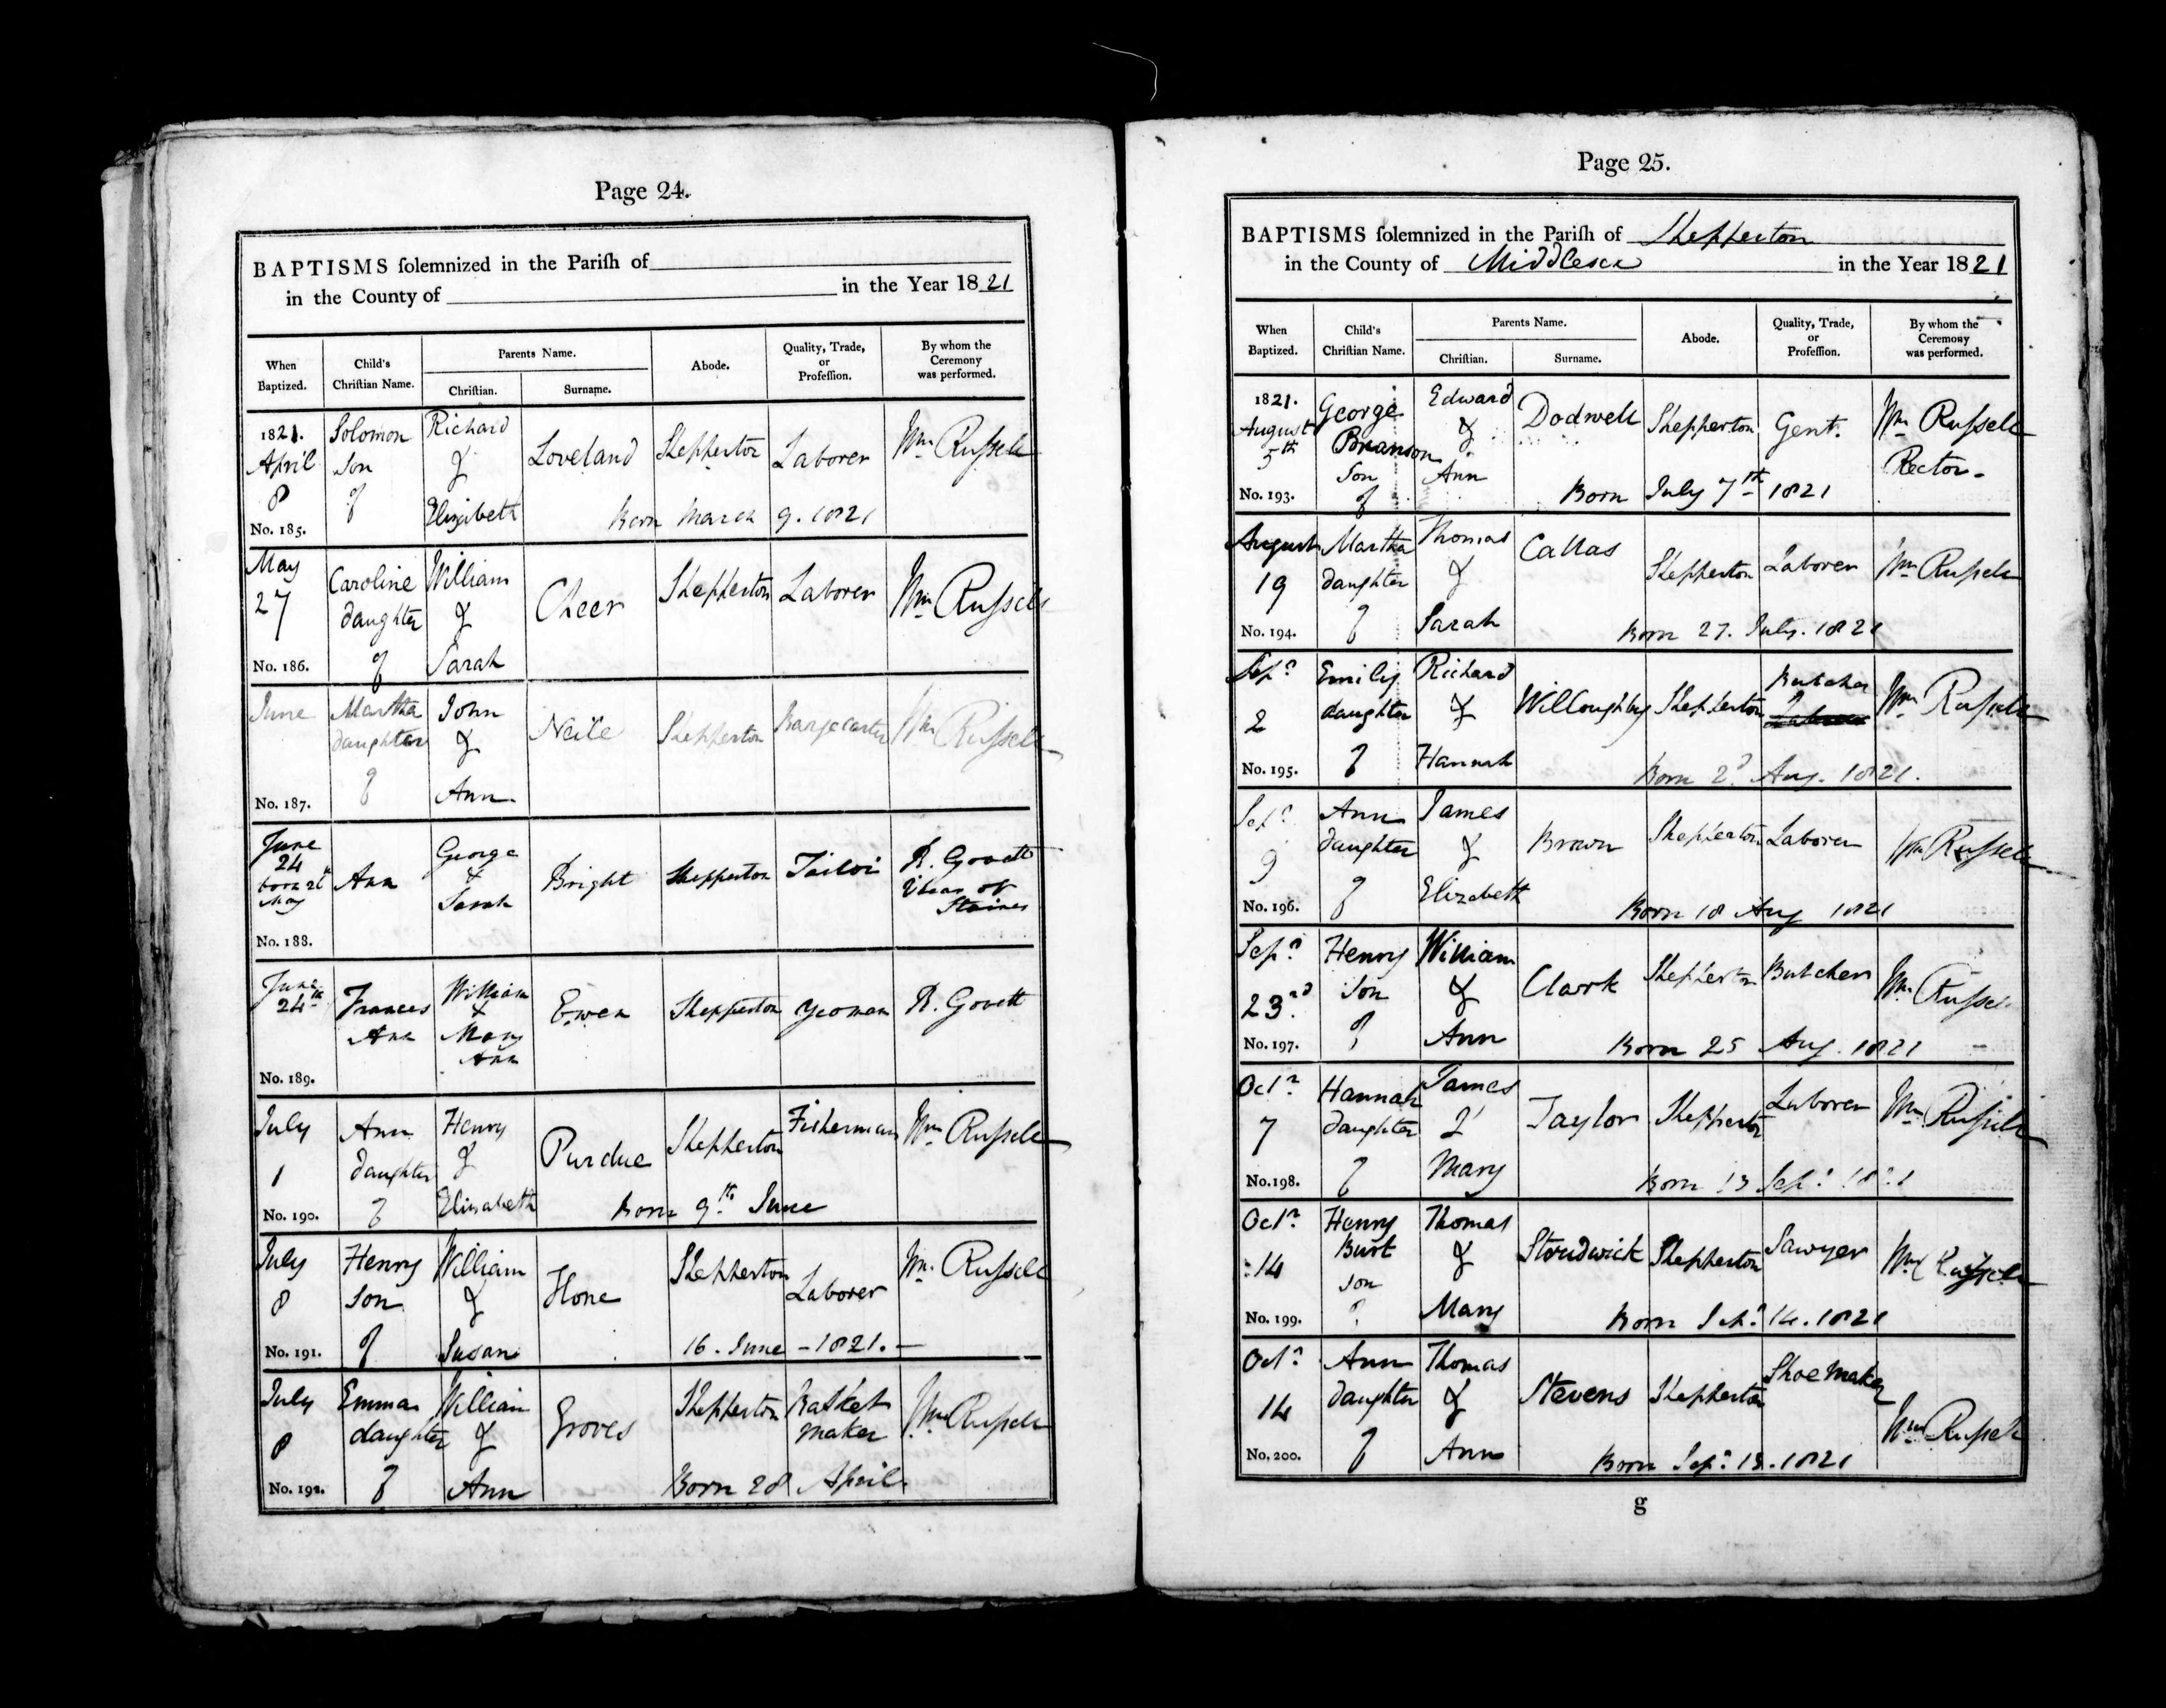 Page 24.
BAPTISMS ſolemnized in the Pariſh of
in the County of in the Year 1821
When Baptized. Child's Chriſtian Name. Parents Name. Chriſtian. Surname. Abode. Quality, Trade, or Profeſſion. By whom the Ceremony was performed.
1821. April 8 No. 185. Solomon Son of Richard & Elizabeth Loveland Shepperton Laborer Wm Russell
Born March 9. 1821
May 27 No. 186. Caroline daughter of William & Sarah Cheer Shepperton Laborer Wm Russell
June No. 187. Martha daughter of John & Ann Neile Shepperton Bargecarter Wm Russell
June 24 born 26th May No. 188. Ann George & Sarah Bright Shepperton Tailor R. Govett Vicar of Staines
June 24th No. 189. Frances Ann William & Mary Ann Ewen Shepperton Yeoman R. Govett
July 1 No. 190. Ann daughter of Henry & Elisabeth Purdue Shepperton Fisherman Wm Russell
Born 9th June
July 8 No. 191. Henry Son of William & Susan Hone Shepperton Laborer Wm. Russell
16. June - 1821. -
July 8 No. 192. Emma daughter of William & Ann Groves Shepperton Basket maker Wm Russell
Born 28 April.
Page 25.
BAPTISMS ſolemnized in the Pariſh of Shepperton
in the County of Middlesex in the Year 1821
When Baptized. Child's Chriſtian Name. Parents Name. Chriſtian. Surname. Abode. Quality, Trade, or Profeſſion. By whom the Ceremony was performed.
1821. August 5th No. 193. George Branson Son of Edward & Ann Dodwell Shepperton Gent. Wm Russell Rector -
Born July 7th 1821
August 19 No. 194. Martha daughter of Thomas & Sarah Callas Shepperton Laborer Wm Russell
Born 27. July. 1821
Sepr 2 No. 195. Emily daughter of Richard & Hannah Willoughby Shepperton Butcher Wm Russell
Born 2d Aug. 1821.
Sepr 9 No. 196. Ann daughter of James & Elizabeth Brown Shepperton Laborer Wm Russell
Born 18 Aug 1821
Sepr 23rd No. 197. Henry Son of William & Ann Clark Shepperton Butcher Wm Russell
Born 25 Aug. 1821
Octr 7 No. 198. Hannah daughter of James & Mary Taylor Shepperton Laborer Wm Russell
Born 13 Sepr
Octr 14 No. 199. Henry Burt son of Thomas & Mary Strudwick Shepperton Sawyer Wm Russell
Born Sepr 14. 1821
Octr 14 No. 200. Ann daughter of Thomas & Ann Stevens Shepperton Shoemaker Wm Russell
Born Sepr 13. 1821
g